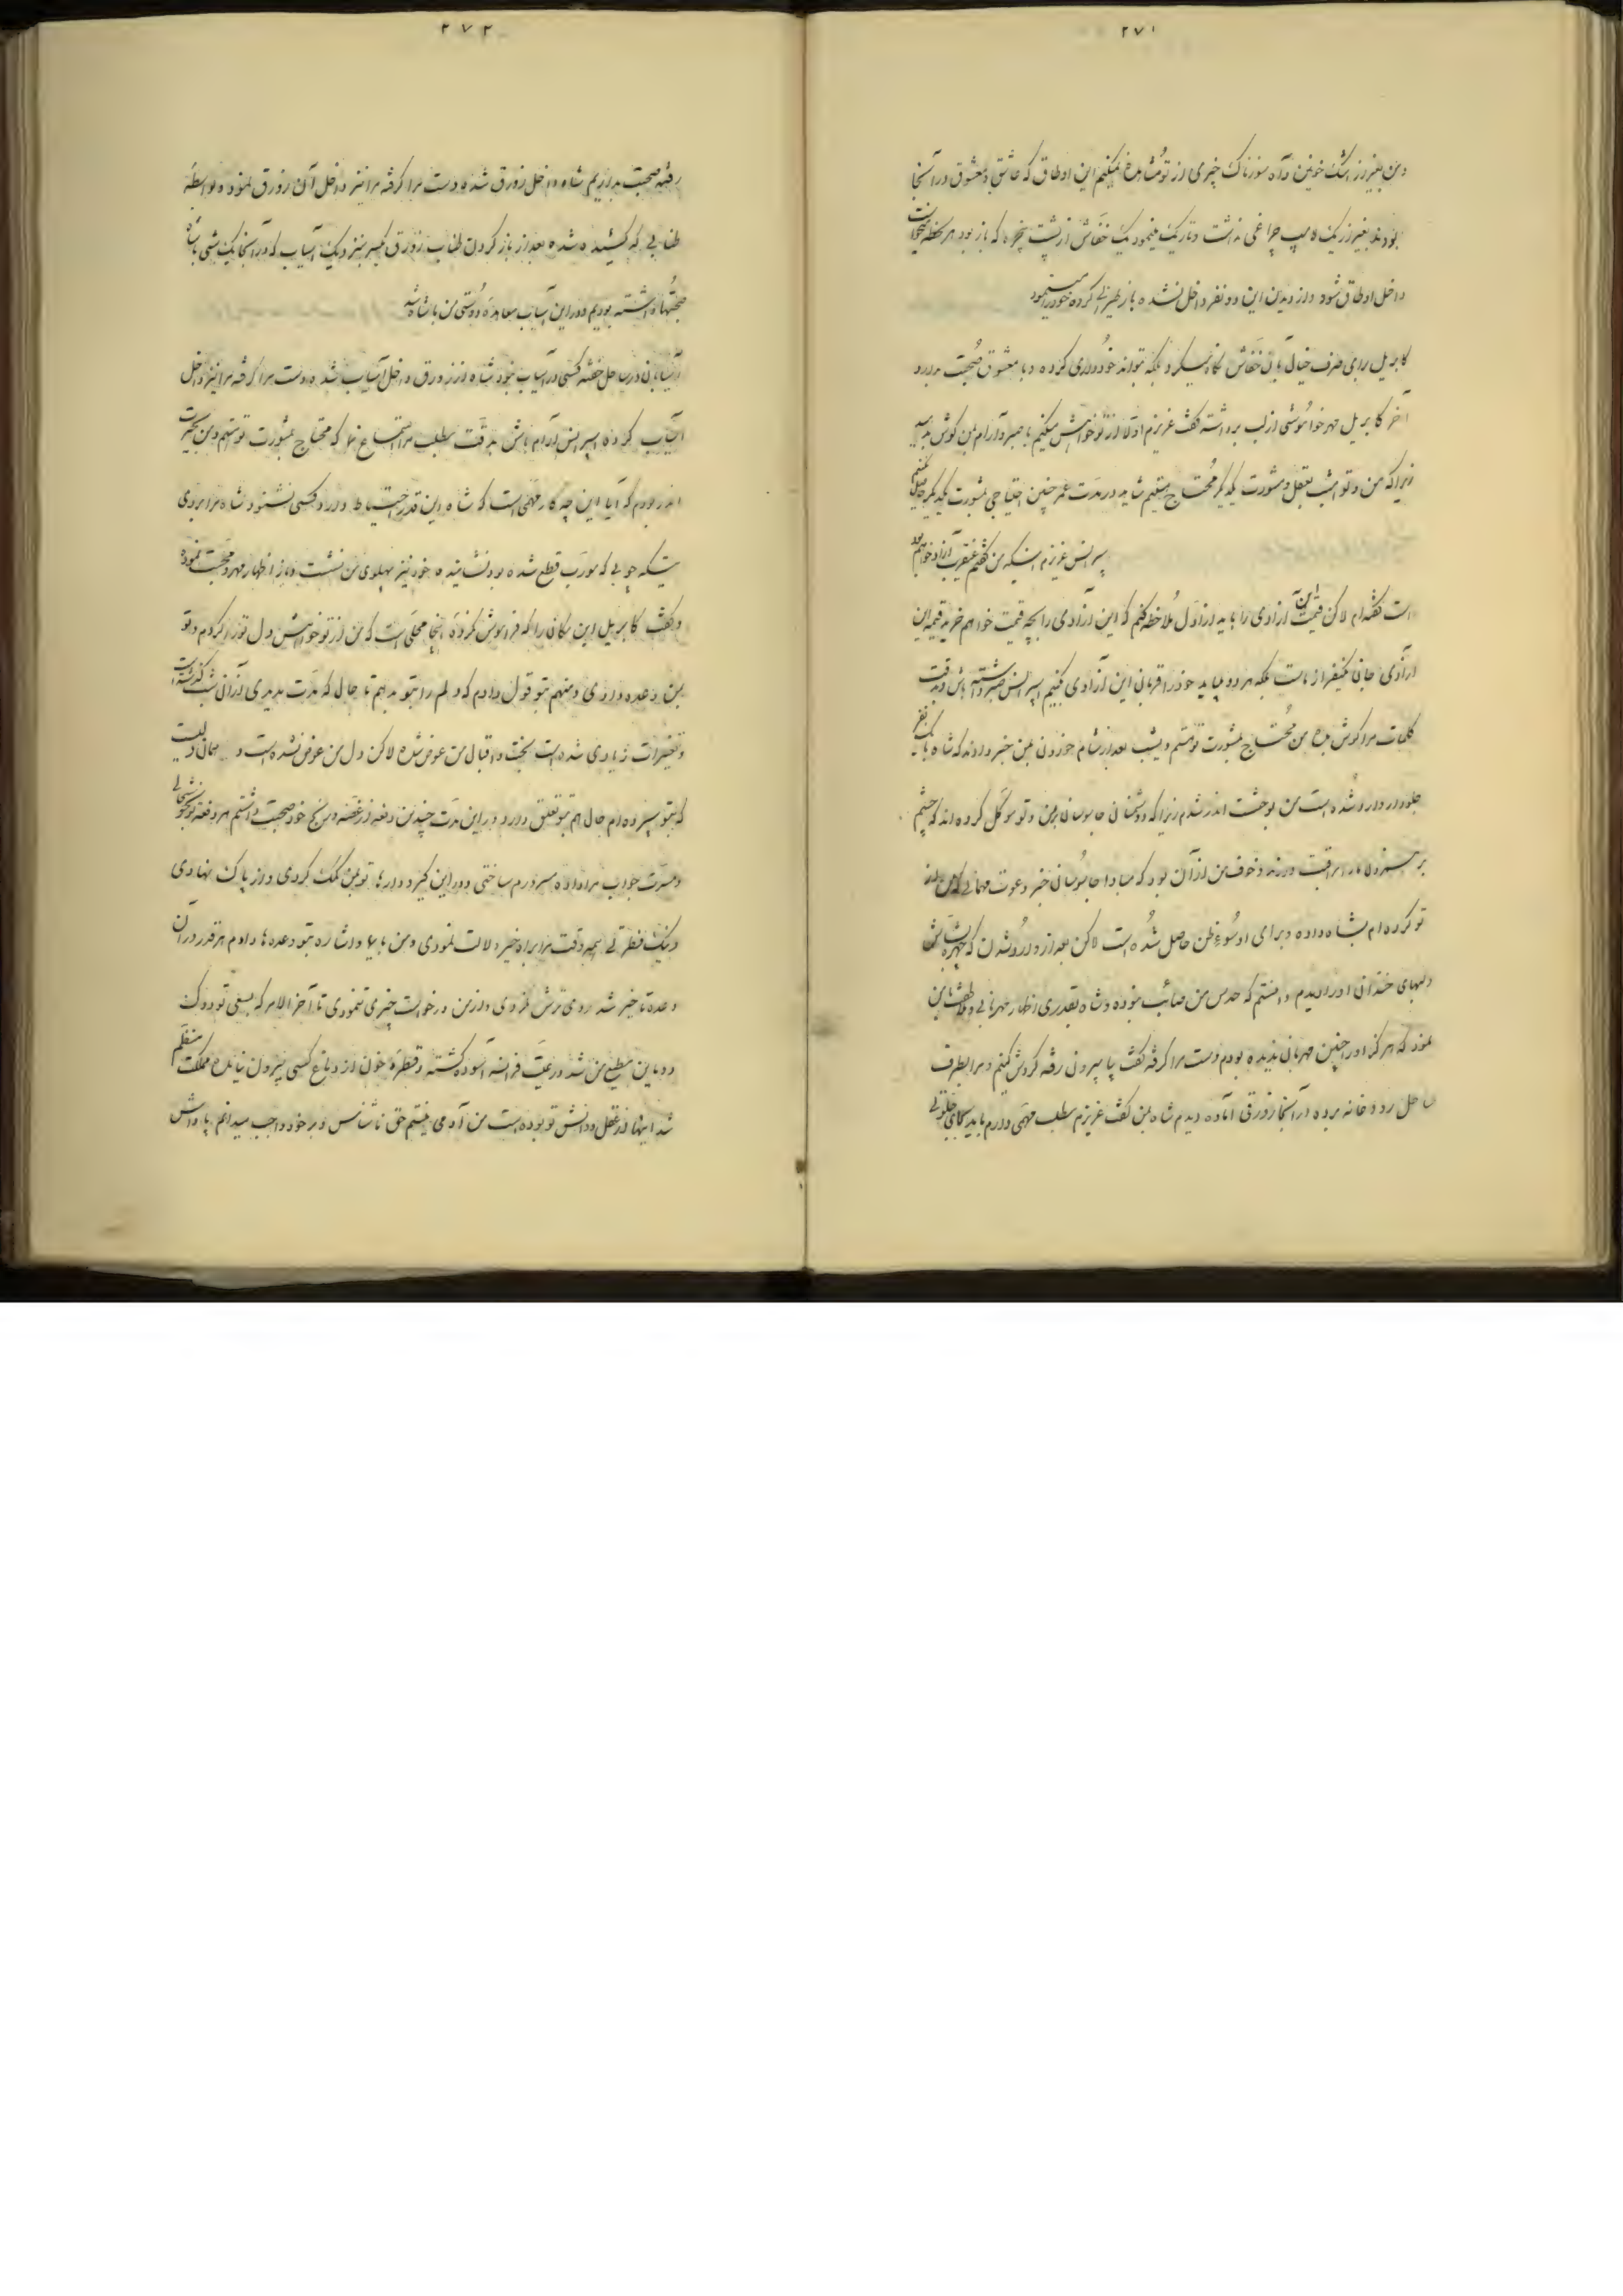 ۲۷۱
و من بغیر از اشک خونین و آه سوزناک چیزی از تو مشاهده نمیکنم این اوطاق که عاشق و معشوق در آنجا
بودند بغیر از یک لامپ چراغی نداشت و تاریک مینمود یک خفاش از پشت پنجره که باز بود هر لحظه میخواست
داخل اوطاق شود و از دیدن این دو نفر داخل نشده باز کرده خود را مینمود
کابریل برای صرف خیال بآن خفاش نگاه میکرد بلکه بتواند خودداری کرده و با معشوق صحبت بدارد
آخر کابریل مهر خواموشی از لب برداشته گفت عزیزم اولا از تو خواهش میکنم با صبر و آرام بمن گوش بدهید
زیرا که من و تو امشب بعقل و مشورت یکدیگر محتاج هستیم شاید در مدت عمر چنین احتیاجی بمشورت یکدیگر
پرانس عزیزم اینکه من گفتم عنقریب آزاد خواهم بود
راست گفته‌ام لاکن قیمت این آزادی را باید از اول ملاحظه کنم که این آزادی را بچه قیمت خواهم خرید قیمه این
آزادی جان یکنفر از ماست بلکه هر دو باید خود را قربانی این آزادی کنیم پرانس صبر داشته باش و بدقت
کلمات مرا گوش بده من محتاج بمشورت تو هستم دیشب بعد از شام خوردن بمن خبر دادند که شاه با یک نفر
جلودار وارد شده است من بوحشت اندر شدم زیرا که دشمنان جاسوسان بمن و تو موکل کرده‌اند که چشم
بر نداند و ما را مراقبت دارند و خوف من از آن بود که مبادا جاسوسان خبر دعوت مهمانی که من از
تو کرده‌ام بشاه داده و برای او سوء ظن حاصل شده است لاکن بعد از وارد شدن که چهره بشاش
و لبهای خندان او را دیدم دانستم که حدس من صائب نبوده و شاه بقدری اظهار مهربانی و ملاطفت بمن
نمود که هرگز او را چنین مهربان ندیده بودم دست مرا گرفته گفت بیا بیرون رفته گردش کنیم و مرا بطرف
ساحل رودخانه برده در آنجا زورقی آماده دیدم شاه بمن گفت عزیزم مطلب مهمی دارم باید بجای خلوتی
۲۷۲
رفته صحبت بداریم شاه داخل زورق شده دست مرا گرفته مرا نیز داخل آن زورق نموده بواسطه
طنابی که کشیده شده بعد از باز کردن طناب زورق نزدیک آسیاب که در آنجا یک شبی با شاه
صحبتها داشته بودیم و در این آسیاب معاهده دوستی من با شاه شد
آسیابان در ساحل خفته کسی در آسیاب نبود شاه از زورق داخل آسیاب شده دست مرا گرفته مرا نیز داخل
آسیاب کرده پرانس آرام باش بدقت مطلب مرا استماع نما که محتاج بمشورت تو هستم و من بحیرت
اندر بودم که آیا این چه کار مهمی است که شاه این قدر احتیاط دارد کسی نشنود شاه مرا بروی
تیکه چوبی که مورب قطع شده بود نشانیده خود نیز پهلوی من نشست و باز اظهار مهر و محبت نموده
و گفت کابریل این مکان را که فراموش نکرده اینجا محلی است که من از تو خواهش دل تو را کردم و تو
بمن وعده دادی و منهم بتو قول دادم که دلم را بتو بدهم تا حال که مدت مدیدی از آن شب گذشته است
و تغییرات زیادی شده است بخت و اقبال من عوض شده لاکن دل من عوض نشده است و همان دلیست
که بتو سپرده‌ام حال هم بتو تعلق دارد در این مدت چندین دفعه از غصه و رنج خود صحبت داشتم هر دفعه تو بخوشحالی
و مسرت جواب مرا داده مسرورم ساختی و در این گیر و دارها تو بمن کمک کردی و از پاک نهادی
و نیک فطرتی همه وقت مرا براه خیر دلالت نمودی و من با و اشاره بتو وعده‌ها دادم هر قدر در آن
وعده تاخیر شد روی ترش نکردی و از من درخواست چیزی ننمودی تا آخر الامر که بسعی تو دوک
دومایین مطیع من شد و رعیت فرانسه آسوده گشته و قطره خون از دماغ کسی بیرون نیامده مملکت منظم
شد اینها از عقل و دانش تو بوده است من آدمی نیستم حق نا شناس و بر خود واجب میدانم پاداش